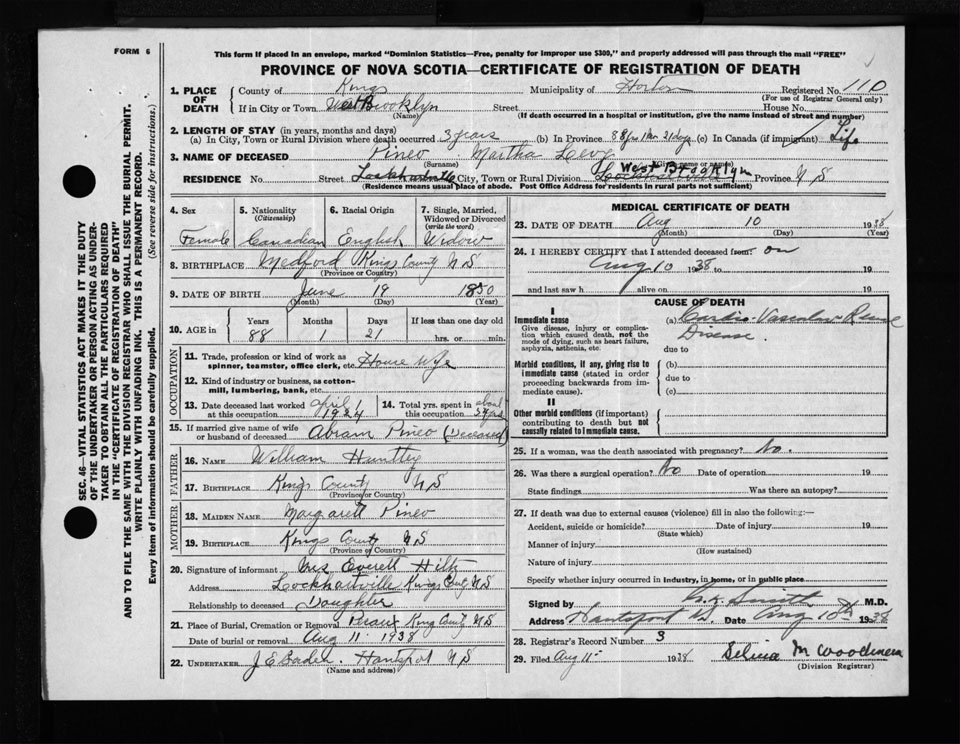 FORM 6
This form if placed in an envelope, marked "Dominion Statistics—Free, penalty for improper use $300," and properly addressed will pass through the mail "FREE"
PROVINCE OF NOVA SCOTIA—CERTIFICATE OF REGISTRATION OF DEATH
1. PLACE OF DEATH
County of Kings Municipality of Horton Registered No. 110
(For use of Registrar General only)
If in City or Town West Brooklyn Street House No.
(Name) (If death occurred in a hospital or institution, give the name instead of street and number)
2. LENGTH OF STAY (in years, months and days)
(a) In City, Town or Rural Division where death occurred 3 years (b) In Province 88 yrs 1 21 days (c) In Canada (if immigrant) Life
3. NAME OF DECEASED Pineo Martha
(Surname)
RESIDENCE No. Street Lockhartville City, Town or Rural Division West Brooklyn Province N S
(Residence means usual place of abode. Post Office Address for residents in rural parts not sufficient)
4. Sex Female
5. Nationality (Citizenship) Canadian
6. Racial Origin English
7. Single, Married, Widowed or Divorced (write the word) Widow
8. BIRTHPLACE Medford Kings County N S
(Province or Country)
9. DATE OF BIRTH June 19 1850
(Month) (Day) (Year)
10. AGE in Years 88 Months 1 Days 21 If less than one day old hrs. or min.
OCCUPATION
11. Trade, profession or kind of work as spinner, teamster, office clerk, etc. House Wife
12. Kind of industry or business, as cotton-mill, lumbering, bank, etc.
13. Date deceased last worked at this occupation April 1924
14. Total yrs. spent in this occupation about
15. If married give name of wife or husband of deceased Abram Pineo (Deceased)
FATHER
16. NAME William Huntley
17. BIRTHPLACE Kings County N S
(Province or Country)
MOTHER
18. MAIDEN NAME Margarett Pineo
19. BIRTHPLACE Kings County N S
(Province or Country)
20. Signature of informant Mrs Everett Hiltz
Address Lockhartville Kings County N S
Relationship to deceased Daughter
21. Place of Burial, Cremation or Removal Kings County N S
Date of burial or removal Aug 11 1938
22. UNDERTAKER Hantsport N S
(Name and address)
MEDICAL CERTIFICATE OF DEATH
23. DATE OF DEATH Aug 10 1938
(Month) (Day) (Year)
24. I HEREBY CERTIFY that I attended deceased from: on
Aug 10 1938 to 19
and last saw h alive on 19
CAUSE OF DEATH
I
Immediate cause
Give disease, injury or complication which caused death, not the mode of dying, such as heart failure, asphyxia, asthenia, etc.
(a) Cardio-Vascular Renal Disease.
due to
Morbid conditions, if any, giving rise to immediate cause (stated in order proceeding backwards from immediate cause).
(b)
due to
(c)
II
Other morbid conditions (if important) contributing to death but not causally related to immediate cause.
25. If a woman, was the death associated with pregnancy? No.
26. Was there a surgical operation? No Date of operation 19
State findings Was there an autopsy?
27. If death was due to external causes (violence) fill in also the following:—
Accident, suicide or homicide? Date of injury 19
(State which)
Manner of injury
(How sustained)
Nature of injury
Specify whether injury occurred in industry, in home, or in public place
Signed by Smith M.D.
Address Hantsport N.S. Date Aug 10th 1938
28. Registrar's Record Number 3
29. Filed Aug 11 1938 M Woodman
(Division Registrar)
SEC. 46—VITAL STATISTICS ACT MAKES IT THE DUTY
OF THE UNDERTAKER OR PERSON ACTING AS UNDER-
TAKER TO OBTAIN ALL THE PARTICULARS REQUIRED
IN THE "CERTIFICATE OF REGISTRATION OF DEATH"
AND TO FILE THE SAME WITH THE DIVISION REGISTRAR WHO SHALL ISSUE THE BURIAL PERMIT.
WRITE PLAINLY WITH UNFADING INK. THIS IS A PERMANENT RECORD.
Every item of information should be carefully supplied. (See reverse side for instructions.)